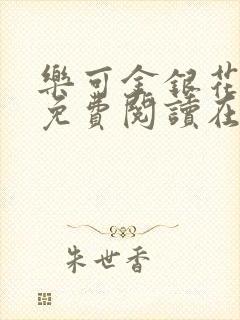 樂可金銀花
免費閱讀在
朱世香